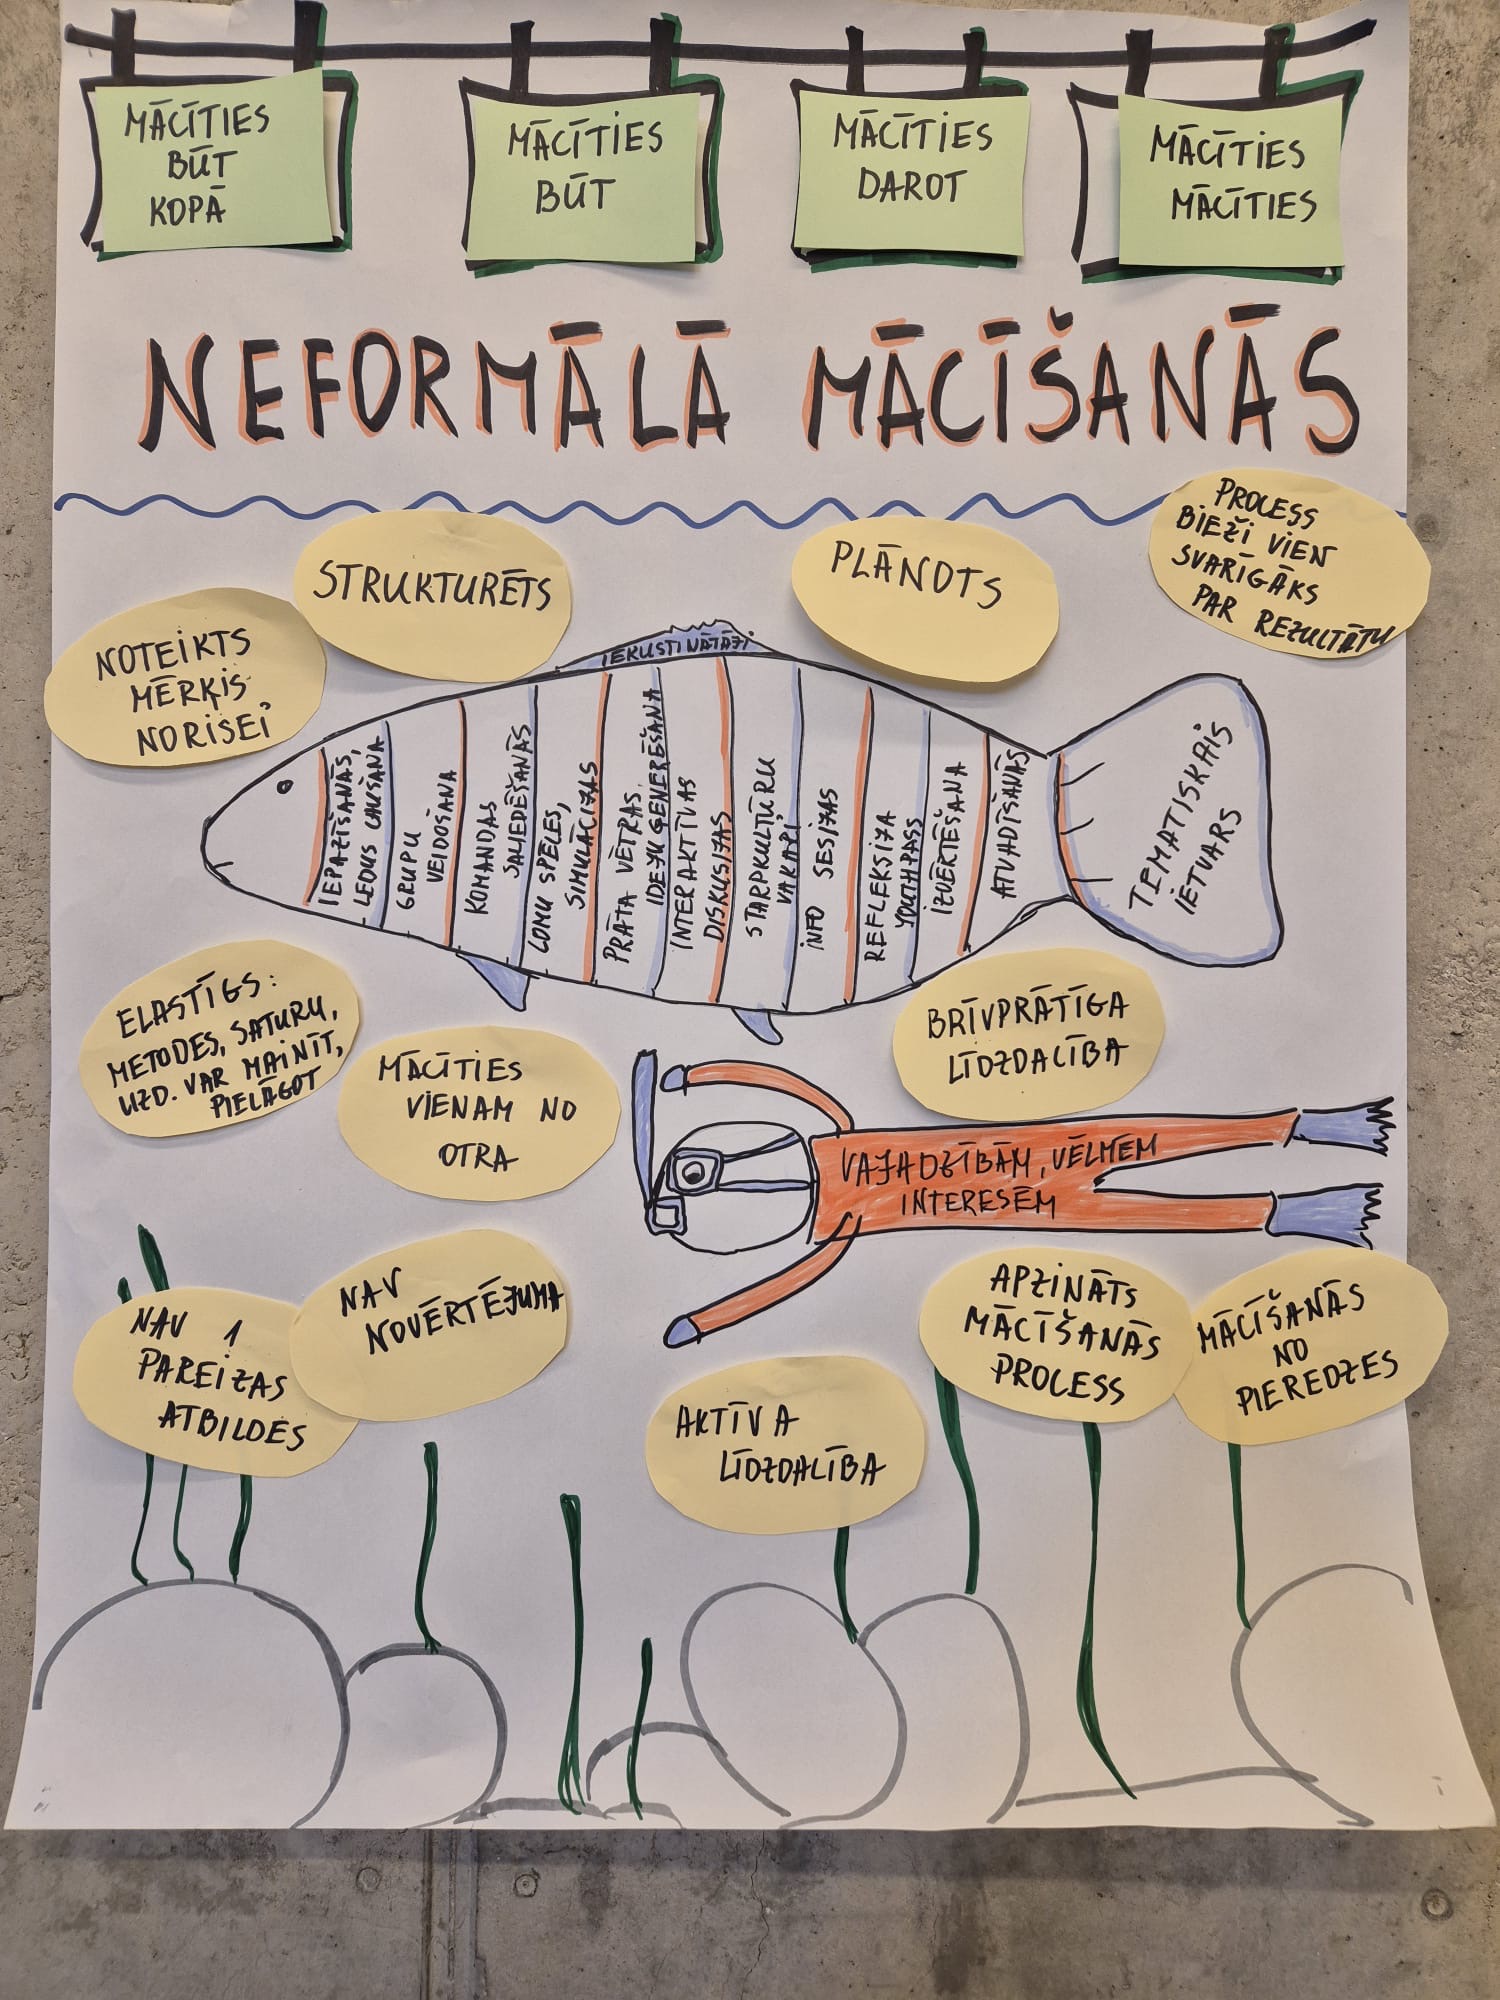 MĀCĪTIES
BŪT
KOPĀ
MĀCĪTIES
BŪT
MĀCĪTIES
DAROT
MĀCĪTIES
MĀCĪTIES
NEFORMĀLĀ MĀCĪŠANĀS
PROCESS
BIEŽI VIEN
SVARĪGĀKS
PAR REZULTĀTU
STRUKTURĒTS
PLĀNOTS
NOTEIKTS
MĒRĶIS
NORISEI
IEKUSTINĀTĀJI
IEPAZĪŠANĀS,
LEDUS LAUŠANA
GRUPU
VEIDOŠANA
KOMANDAS
SALIEDĒŠANĀS
LOMU SPĒLES,
SIMULĀCIJAS
PRĀTA VĒTRAS,
IDEJU ĢENERĒŠANA
INTERAKTĪVAS
DISKUSIJAS
STARPKULTŪRU
VAKARI
INFO SESIJAS
REFLEKSIJA
YOUTHPASS
IZVĒRTĒŠANA
ATVADĪŠANĀS
TEMATISKAIS
IETVARS
ELASTĪGS:
METODES, SATURU,
UZD. VAR MAINĪT,
PIELĀGOT
MĀCĪTIES
VIENAM NO
OTRA
BRĪVPRĀTĪGA
LĪDZDALĪBA
VAJADZĪBĀM, VĒLMĒM
INTERESĒM
NAV 1
PAREIZAS
ATBILDES
NAV
NOVĒRTĒJUMA
AKTĪVA
LĪDZDALĪBA
APZINĀTS
MĀCĪŠANĀS
PROCESS
MĀCĪŠANĀS
NO
PIEREDZES